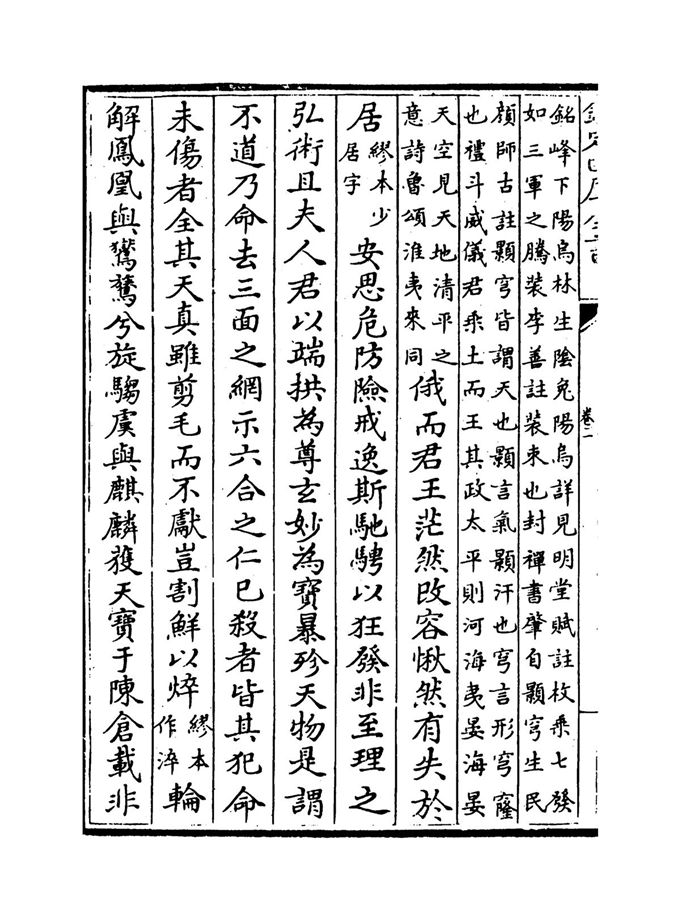 欽定四庫全書
卷二
銘峰下陽烏林生陰兔陽烏詳見明堂賦註枚乗七發
如三軍之騰装李善註装束也封禪書肇自顥穹生民
顔師古註顥穹皆謂天也顥言氣顥汗也穹言形穹窿
也禮斗威儀君乗土而王其政太平則河海夷晏海晏
天空見天地清平之
意詩魯頌淮夷來同
俄而君王茫然改容愀然有失於
居繆本少居字安思危防險戒逸斯馳騁以狂發非至理之
弘術且夫人君以端拱為尊玄妙為寶暴殄天物是謂
不道乃命去三面之網示六合之仁已殺者皆其犯命
未傷者全其天真雖剪毛而不獻豈割鮮以焠繆本作淬輪
解鳳凰與鸑鷟兮旋騶虞與麒麟獲天寶于陳倉載非